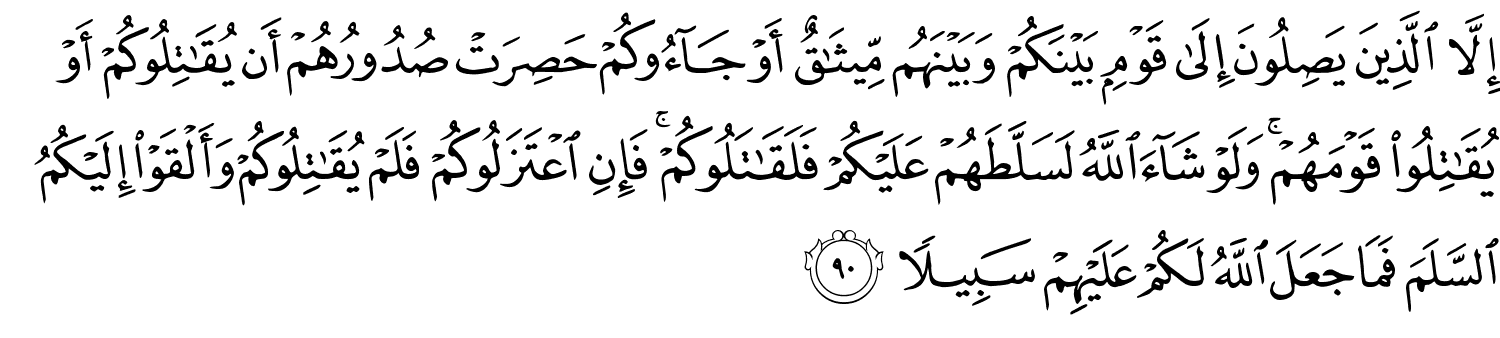 إِلَّا ٱلَّذِينَ يَصِلُونَ إِلَىٰ قَوْمِۭ بَيْنَكُمْ وَبَيْنَهُم مِّيثَٰقٌ أَوْ جَآءُوكُمْ حَصِرَتْ صُدُورُهُمْ أَن يُقَٰتِلُوكُمْ أَوْ
يُقَٰتِلُوا۟ قَوْمَهُمْ ۚ وَلَوْ شَآءَ ٱللَّهُ لَسَلَّطَهُمْ عَلَيْكُمْ فَلَقَٰتَلُوكُمْ ۚ فَإِنِ ٱعْتَزَلُوكُمْ فَلَمْ يُقَٰتِلُوكُمْ وَأَلْقَوْا۟ إِلَيْكُمُ
ٱلسَّلَمَ فَمَا جَعَلَ ٱللَّهُ لَكُمْ عَلَيْهِمْ سَبِيلًا ٩٠